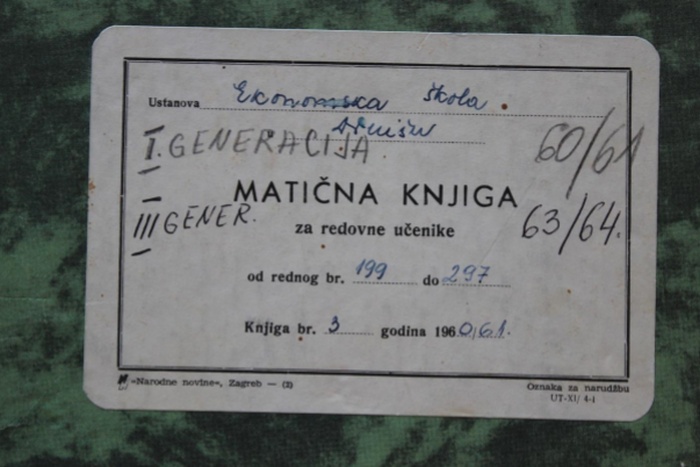 Ustanova Ekonomska škola
Drnišu
I. GENERACIJA 60/61
MATIČNA KNJIGA
III GENER. 63/64.
za redovne učenike
od rednog br. 199 do 297
Knjiga br. 3 godina 1960/61.
»Narodne novine«, Zagreb — (2)
Oznaka za narudžbu
UT-XI/4-i